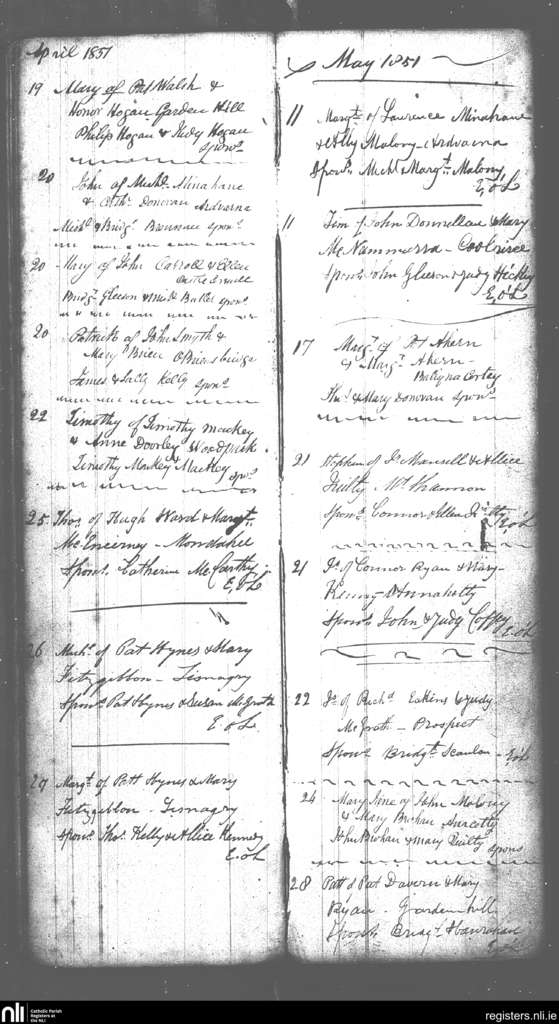 April 1851
19 Mary of Pat Walsh &
Honor Hogan Garden Hill
Philip Hogan & Judy Hogan
Spons
20 John of Michl Minahane
& Cath Donovan Ardvarna
Michl & Bridgt Spons
20 Mary of John Carroll & Ellen
Bridgt Gleeson & Baker Spons
20 Patrick of John Smyth &
Mary Brien O'Briensbridge
James & Sally Kelly Spons
22 Timothy of Timothy Mackey
& Anne Doorley Woodpark
Timothy Mackey Mackey Spons
25 Thos of Hugh Ward & Margt
McInerney - Mondahill
Spons Catherine McCarthy
E, O'L
26 Michl of Pat Hynes & Mary
Fitzgibbon - Lismagry
Spons Pat Hynes & Susan McGrath
E. O'L
29 Margt of Patt Hynes & Mary
Fitzgibbon - Lismagry
Spons Thos Kelly & Allice Kennedy
E. O'L
May 1851
11 Margt of Laurence Minahane
& Ally Malony - Ardvarna
Spons Michl & Margt Malony
E, O'L
11 Tim of John Donnellan & Mary
McNammarra - Coolrisee
Spons John Gleeson & Judy Hickey
E, O'L
17 Margt of Pt Ahern
& Margt Ahern -
Thos & Mary Donovan Spons
21 Stephen of Js Mansell & Allice
Quilty - Mt Shannon
Spons Connor & Ellen
E, O'L
21 of Connor Ryan & Mary
Kenny - Annahelty
Spons John & Judy Coffey
E. O'L
22 of Richd Eakins & Judy
McGrath - Prospect
Spons Bridgt Scanlan - E, O'L
24 Mary Anne of John Malony
& Mary
& Mary Quilty Spons
28 Patt of Pat Davern & Mary
Ryan - Gardenhill
Spons Bridgt Hanrahan
nli
Catholic Parish
Registers at
the NLI
registers.nli.ie